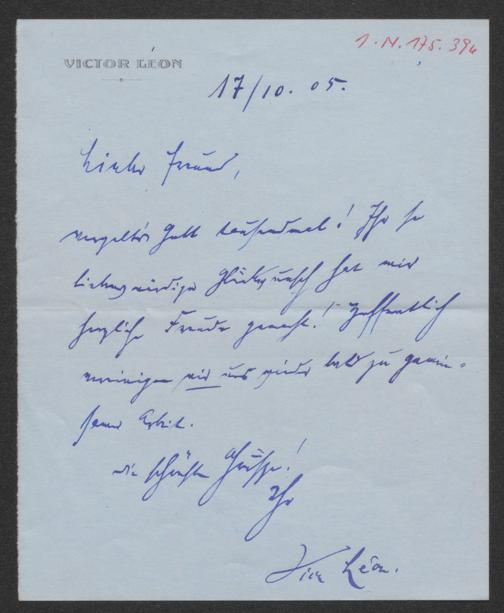 1.N.175.394
VICTOR LÉON
17/10.05.
Lieber Freund,
vergelt's Gott tausendmal! Ihr so
liebenswürdiger Glückwunsch hat mir
herzliche Freude gemacht! Hoffentlich
vereinigen wir uns wieder bald zu gemein-
samer Arbeit.
Die schönsten Grüsse!
Ihr
Vict Léon.